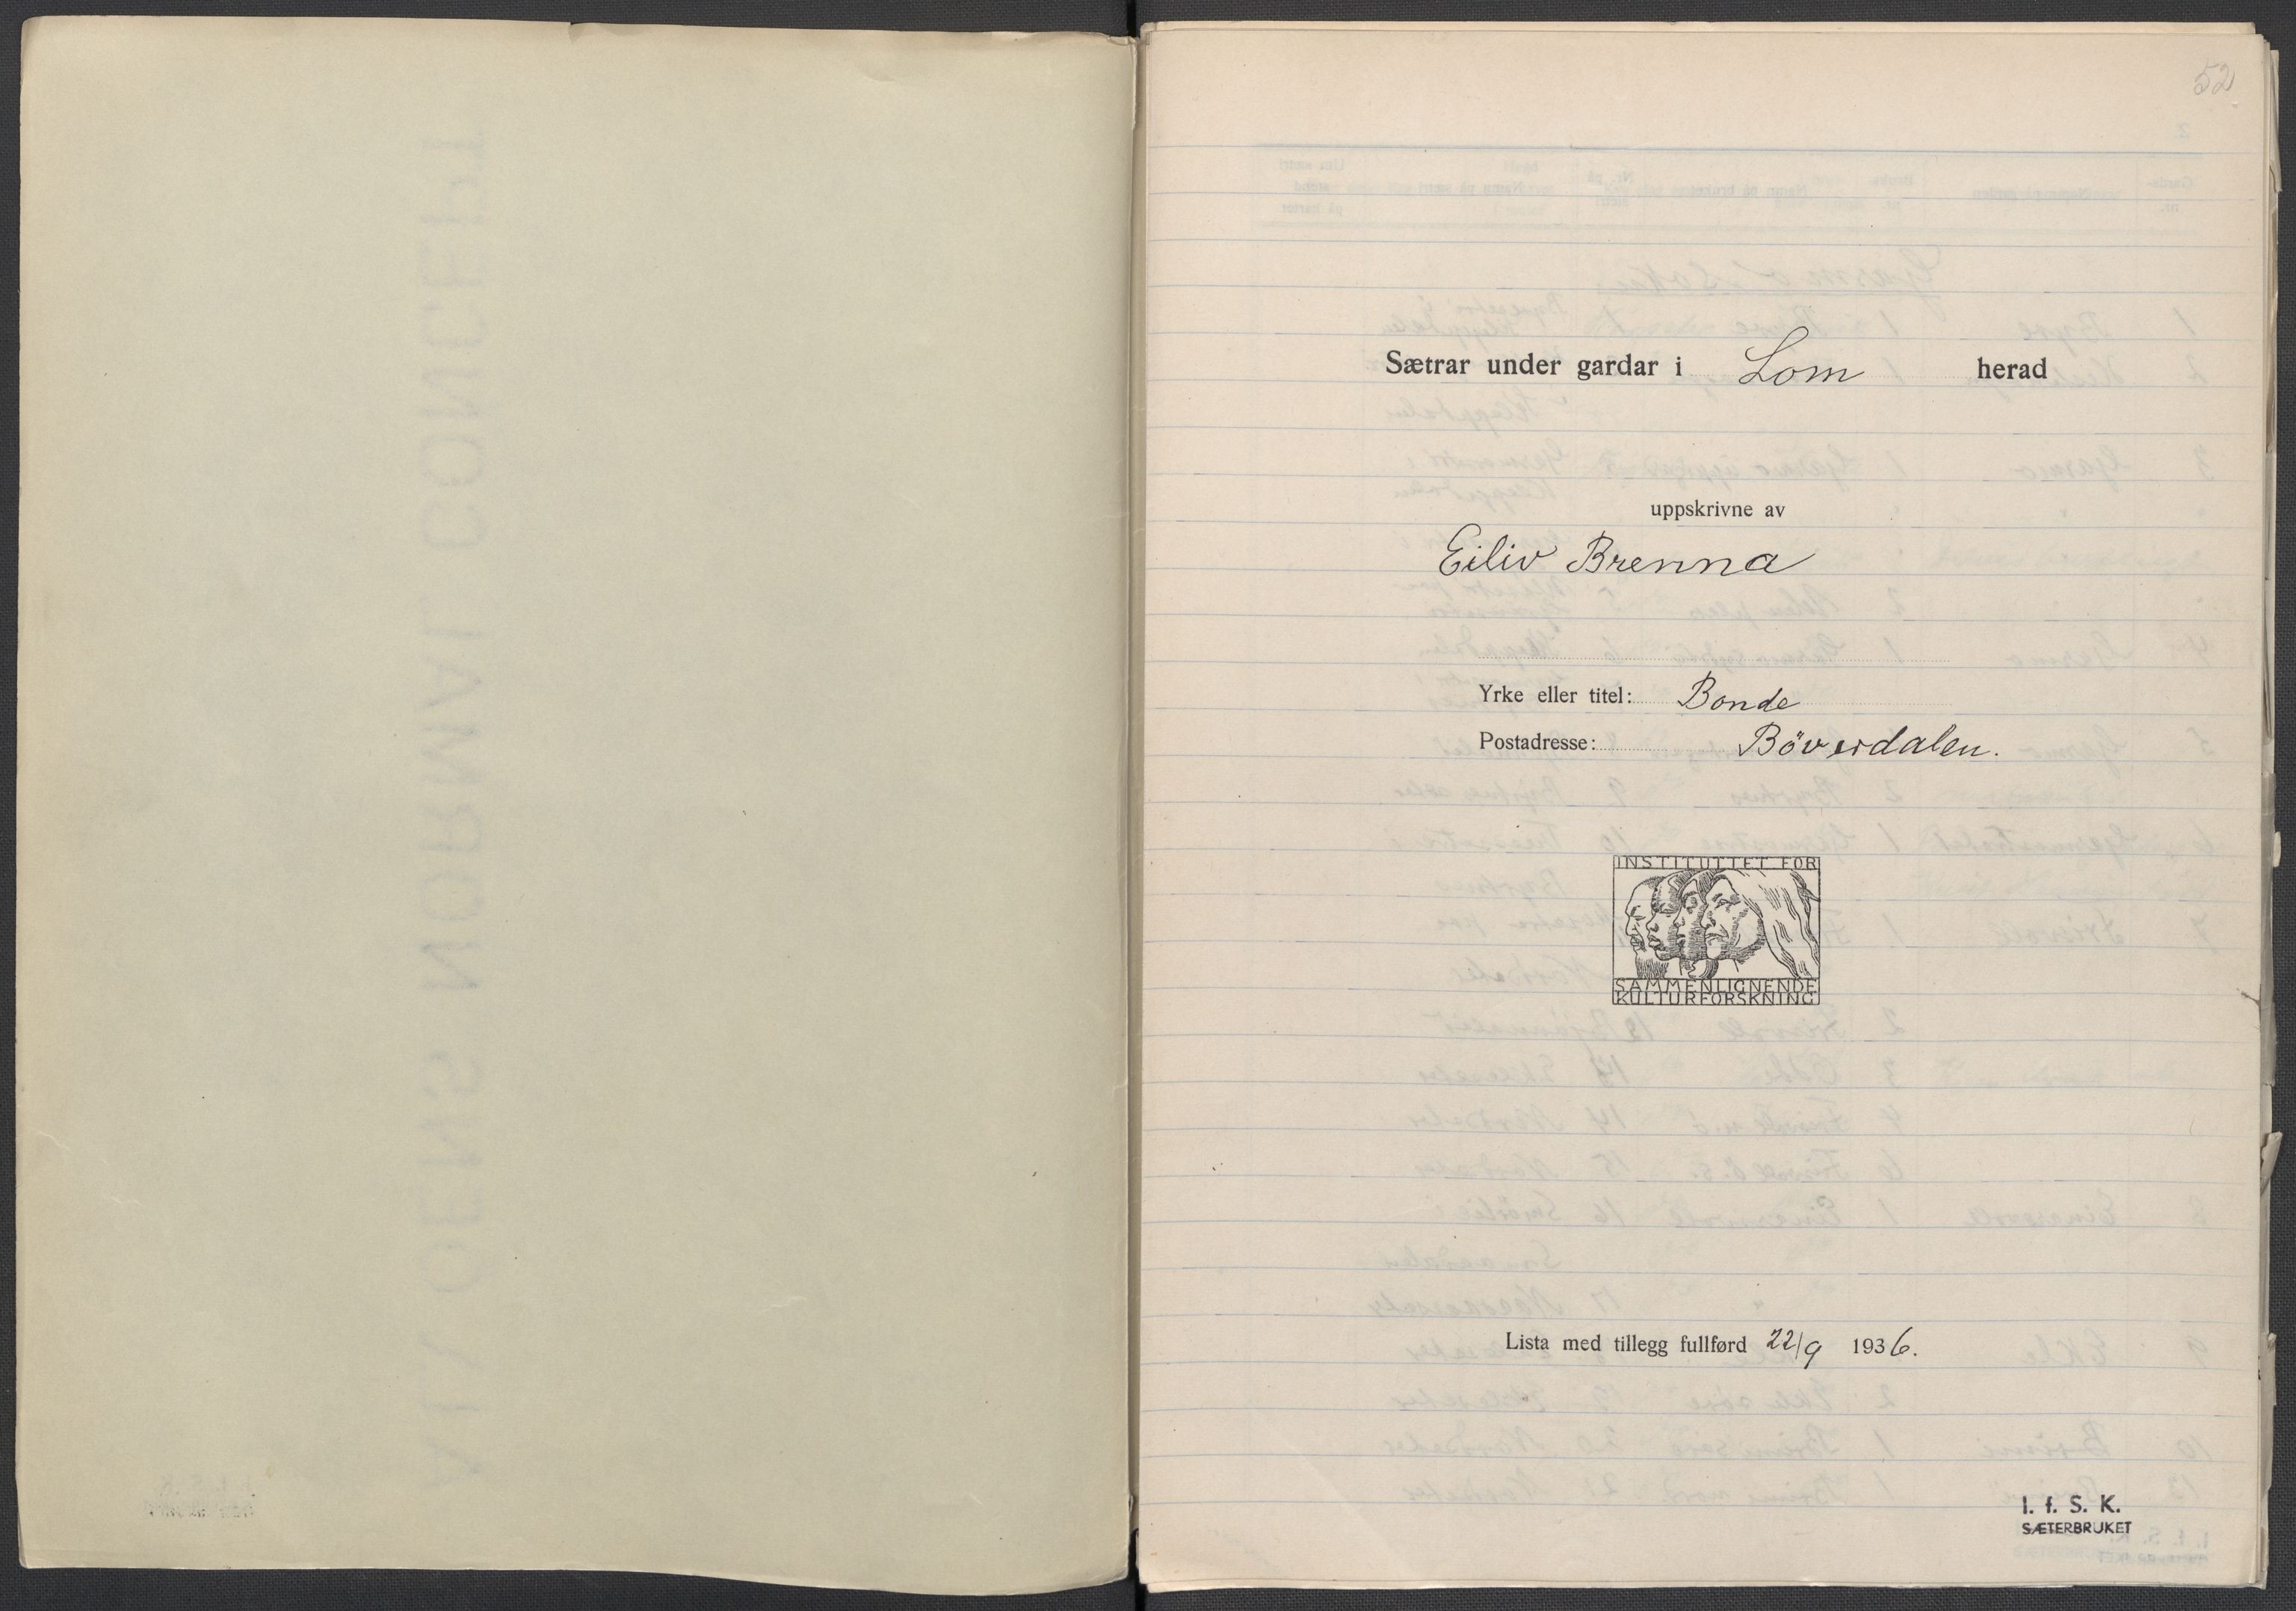 52
Sætrar under gardar i Lom herad
uppskrivne av
Eiliv Brenna
Yrke eller titel: Bonde
Postadresse: Böverdalen.
INSTITUTTET FOR
SAMMENLIGNENDE
KULTURFORSKNING
Lista med tillegg fullførd 22/9 1936.
I. f. S. K.
SÆTERBRUKET